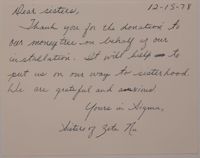 12-15-78
Dear sisters,
Thank you for the donation to
our money tree on behalf of our
installation. It will help to
put us on our way to sisterhood.
We are grateful and
Yours in Sigma,
Sisters of Zeta Nu